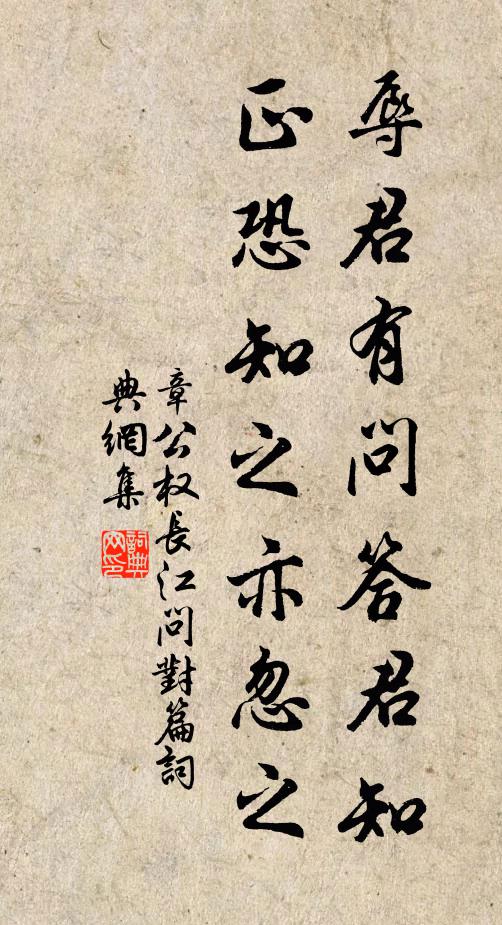 辱君有问答君知
正恐知之亦忽之
章公权長江问對篇詞
典網集
詞典
网印